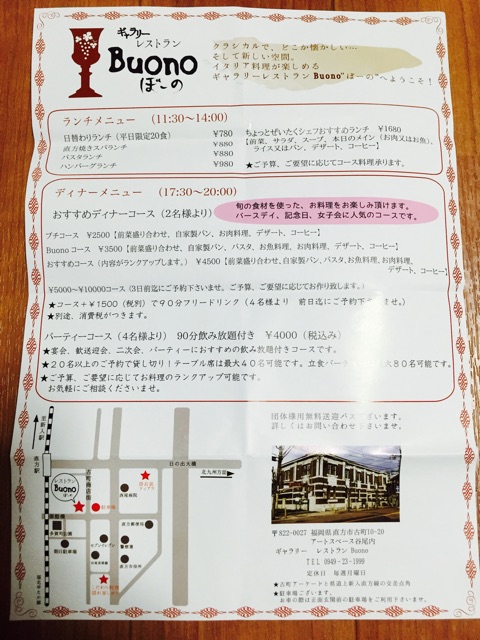 ギャラリー
レストラン
Buono
ぼーの
クラシカルで、どこか懐かしい…
そして新しい空間。
イタリア料理が楽しめる
ギャラリーレストラン Buono"ぼーの"へようこそ!
ランチメニュー (11:30~14:00)
日替わりランチ(平日限定20食) ¥780
直方焼きスパランチ ¥880
パスタランチ ¥980
ハンバーグランチ ¥980
ちょっとぜいたくシェフおすすめランチ ¥1680
【前菜、サラダ、スープ、本日のメイン(お肉又はお魚)、
ライス又はパン、デザート、コーヒー】
★ご予算、ご要望に応じてコース料理承ります。
ディナーメニュー (17:30~20:00)
おすすめディナーコース(2名様より)
旬の食材を使った、お料理をお楽しみ頂けます。
バースデイ、記念日、女子会に人気のコースです。
プチコース ¥2500【前菜盛り合わせ、自家製パン、お肉料理、デザート、コーヒー】
Buonoコース ¥3500【前菜盛り合わせ、自家製パン、パスタ、お魚料理、お肉料理、デザート、コーヒー】
おすすめコース(内容がランクアップします。) ¥4500【前菜盛り合わせ、自家製パン、パスタ、お魚料理、お肉料理、
デザート、コーヒー】
¥5000~¥10000コース(3日前迄にご予約下さいませ。ご予算、ご要望に応じてお作り致します。)
★コース+¥1500(税別)で90分フリードリンク(4名様より 前日迄にご予約下さいませ。)
★別途、消費税がつきます。
パーティーコース(4名様より) 90分飲み放題付き ¥4000(税込み)
★宴会、歓送迎会、二次会、パーティーにおすすめの飲み放題付きコースです。
★20名以上のご予約で貸し切り!テーブル席は最大40名可能です。立食パーティー
大80名可能です。
★ご予算、ご要望に応じてお料理のランクアップ可能です。
お気軽にご相談くださいませ。
団体様用無料送迎バスございます。
詳しくはお問い合わせ下さいませ。
至新入駅
直方駅
レストラン
Buono
ぼーの
古町商店街
日の出大橋
北九州方面
西尾病院
駐車場
直方郵便局
セブンイレブン
警察署
直方市役所
朝日駐車場
〒822-0027 福岡県直方市古町10-20
アートスペース谷尾内
ギャラリー レストラン Buono
TEL 0949-23-1999
定休日 毎週月曜日
★古町アーケードと県道上新入直方線の交差点角
★駐車場ございます。
お車の際は正面玄関前の駐車場をご利用下さいませ。